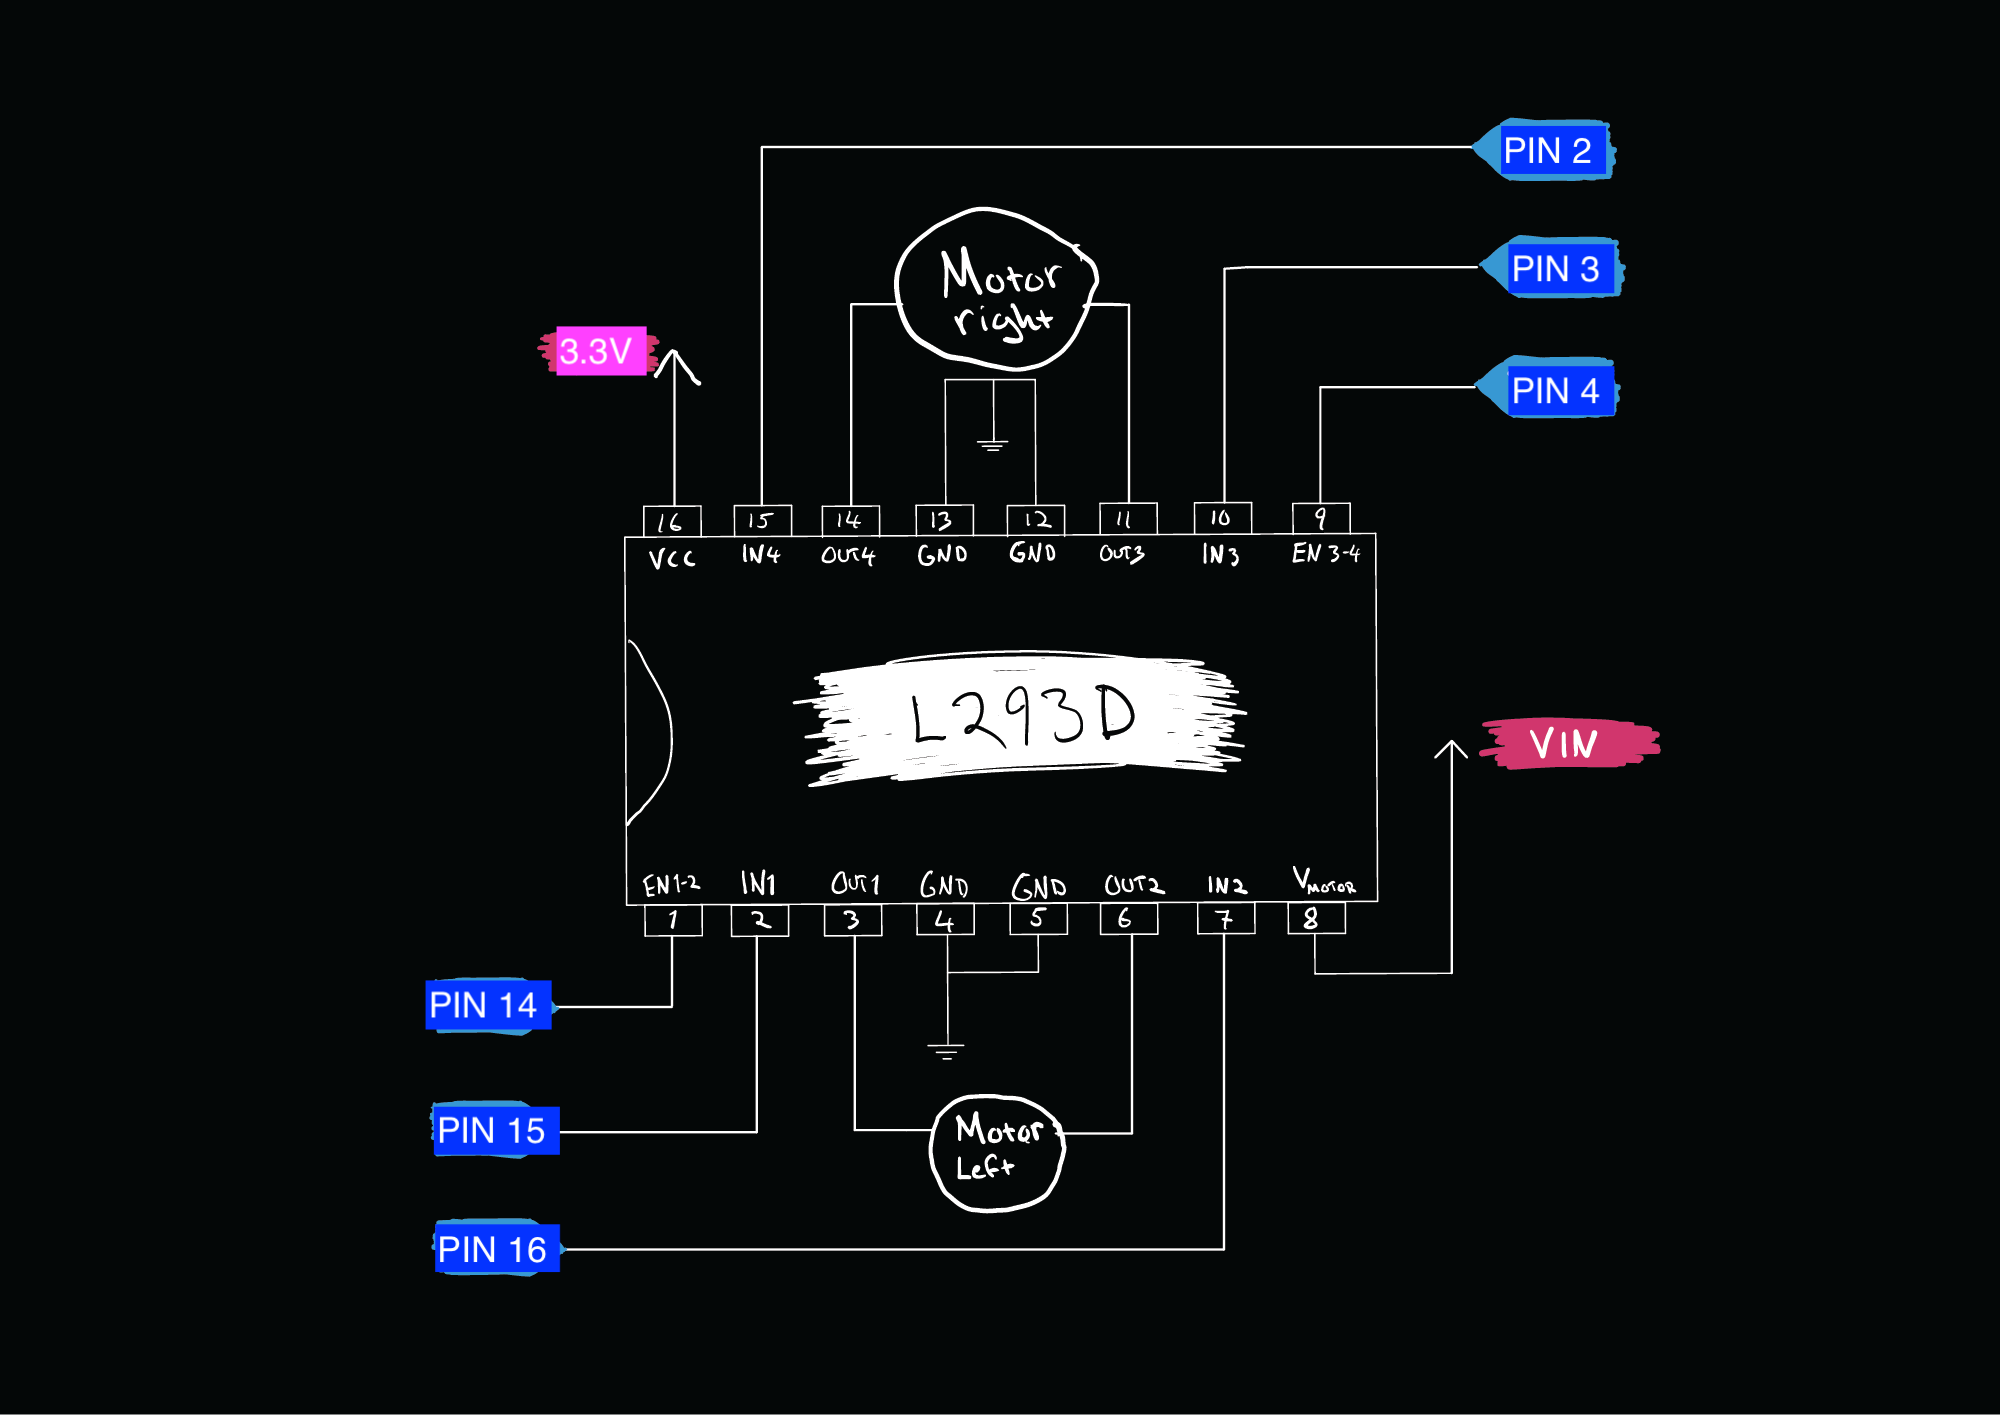 PIN 2
Motor
right
PIN 3
3.3V
PIN 4
16 15 14 13 12 11 10 9
VCC IN4 OUT4 GND GND OUT3 IN3 EN 3-4
L293D
VIN
EN1-2 IN1 OUT1 GND GND OUT2 IN2 VMOTOR
1 2 3 4 5 6 7 8
PIN 14
PIN 15
Motor
Left
PIN 16